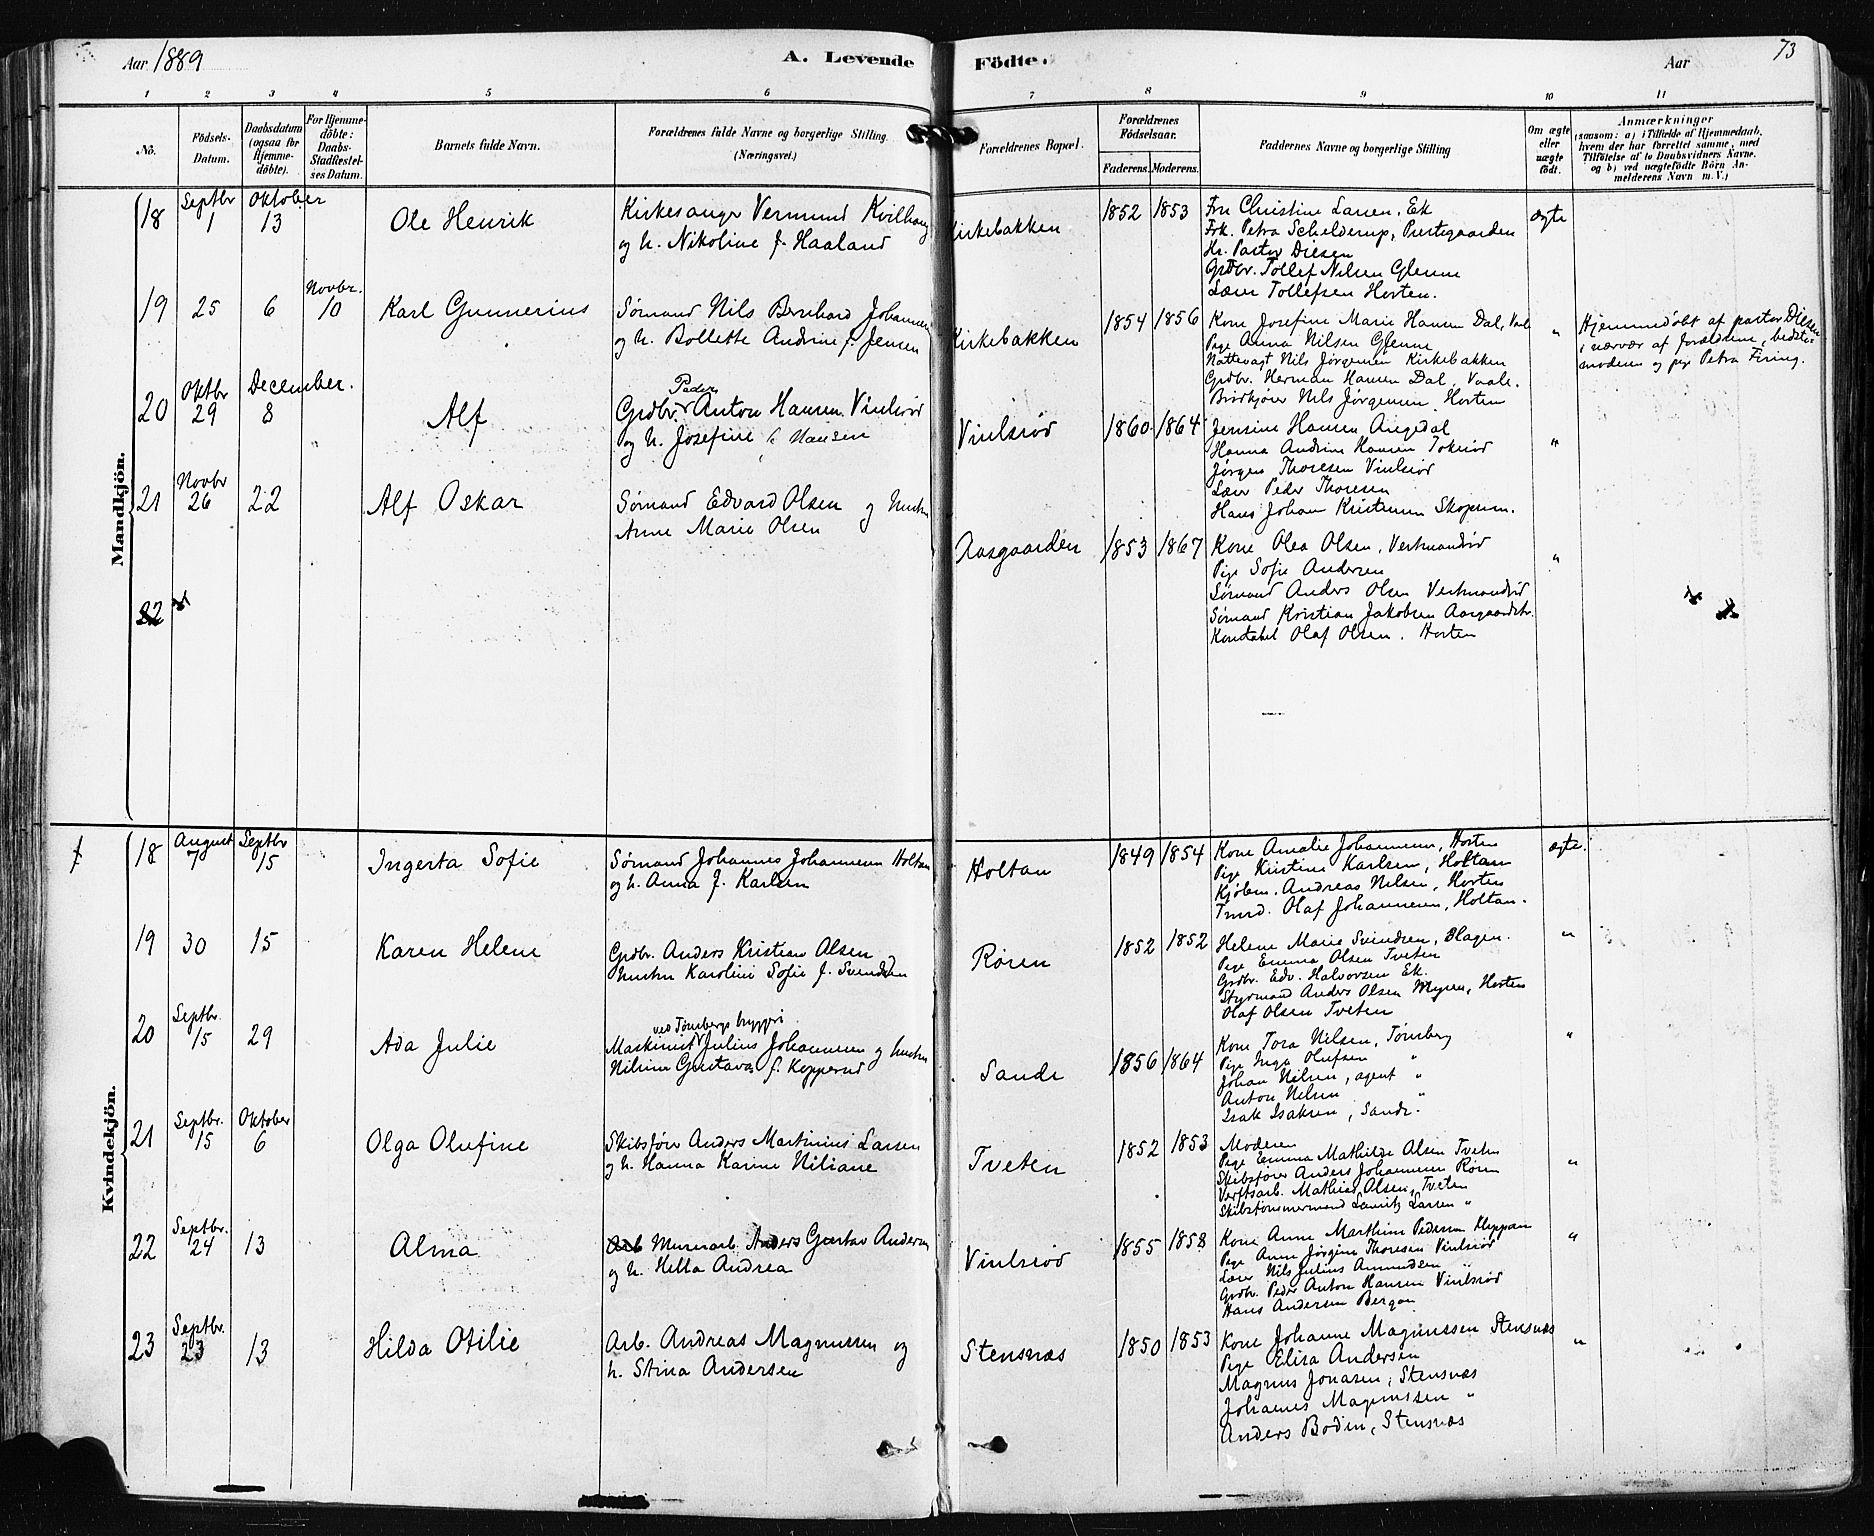 Aar 1889
A. Levende Födte.
Aar
73
1 2 3 4 5 6 7 8 9 10 11
No.
Födsels-Datum.
Daabsdatum (ogsaa for Hjemme-döbte).
For Hjemme-döbte: Daabs-Stadfæstel-ses Datum.
Barnets fulde Navn.
Forældrenes fulde Navne og borgerlige Stilling. (Næringsvei.)
Forældrenes Bopæl.
Forældrenes Födselsaar.
Faderens. Moderens.
Faddernes Navne og borgerlige Stilling
Om ægte eller uægte födt.
Anmærkninger
(saasom: a) i Tilfælde af Hjemmedaab, hvem der har forrettet samme, med Tilföielse af to Daabsvidners Navne, og b) ved uægtefödte Börn An-melderens Navn m. V.)
Mandkjön.
18 Septbr 1 Oktober 13 Ole Henrik
Kirkesanger Vermund Kvilhaug
og h. Nikoline f. Haaland
Kirkebakken 1852 1853
Fru Christine Larsen, Ek
Frk. Petra Schelderup, Prestegaarden
Hr. Pastor Diesen
Grdbr. Tollef Nilsen Glenne
Lærer Tollefsen Horten.
ægte
19 25 6 Novbr. 10 Karl Gunnerius
Sømand Nils Bernhard Johannesen
og h. Bollette Andrine f. Jensen
Kirkebakken 1854 1856
Kone Josefine Marie Hansen Dal, Vaale
Pige Anna Nilsen Glenne
Nattevagt Nils Jørgensen Kirkebakken
Grdbr. Herman Hansen Dal, Vaale.
Brødkjører Nils Jørgensen, Horten
"
Hjemmedøbt af pastor Diesen
i nærvær af forældrene, bedste-
moderen og pige Petra Firing.
20 Oktbr 29 December. 8 Alf
Peder
Grdbr. Anton Hansen Vinlsrød
og h. Josefine f. Hansen
Vinlsrød 1860 1864
Jensine Hansen Angedal
Hanna Andrine Hansen Tokerød
Jørgen Thoresen Vinlsrød
Lærer Peder Thoresen
Hans Johan Kristensen Skoppum.
"
21 Novbr 26 22 Alf Oskar
Sømand Edvard Olsen og hustru
Anne Marie Olsen
Aasgaarden 1853 1867
Kone Olea Olsen, Verkmandrød
Pige Sofie Andersen
Sømand Anders Olsen Verkmandrød
Sømand Kristian Jakobsen Aasgaardstr.
Konstabel Olaf Olsen. Horten
"
22
Kvindekjön.
18 August 7 Septbr 15 Ingerta Sofie
Sømand Johannes Johannesen Holtan
og h. Anna f. Karlsen
Holtan 1849 1854
Kone Amalie Johannesen, Horten
Pige Kristine Karlsen, Holtan
Kjøbm. Andreas Nilsen, Horten
Tmrd. Olaf Johannesen, Holtan.
ægte.
19 30 15 Karen Helene
Grdbr. Anders Kristian Olsen
hustru Karoline Sofie f. Svendsen
Røren 1852 1852
Helene Marie Svendsen, Slagen.
Pige Emma Olsen Tveten
Grdbr. Edv. Halvorsen Ek.
Styrmand Anders Olsen Myren, Horten
Olaf Olsen Tveten
"
20 Septbr. 15 29 Ada Julie
ved Tønsbergs bryggeri
Maskinist Julius Johannesen og hustru
Nilsine Gustava f. Kopperud
Sande 1856 1864
Kone Tora Nilsen, Tønsberg
Pige Inga Olufsen "
Johan Nilsen, agent "
Anton Nilsen "
Isak Isaksen, Sande.
"
21 Septbr. 15 Oktober 6 Olga Olufine
Skibsfører Anders Martinius Larsen
og h. Hanna Karine Niliane
Tveten 1852 1853
Moderen
Pige Emma Mathilde Olsen Tveten
Skibsfører Anders Johannesen Røren
Verftsarb. Mathias Olsen, Tveten
Skibstømmermand Lauritz Larsen "
"
22 Septbr. 24 13 Alma
Arb Murerarb. Anders Gustav Andersen
og h. Hella Andrea
Vinlsrød 1855 1858
Kone Anne Marthine Pedersen Kleppan
Pige Anne Jørgine Thoresen Vinlsrød
Lærer Nils Julius Amundsen "
Grdbr. Peder Anton Hansen Vinlsrød
Hans Andersen Bergan
"
23 Septbr. 23 13 Hilda Otilie
Arb. Andreas Magnussen og
h. Stina Andersen
Stensnæs 1850 1853
Kone Johanne Magnussen Stensnæs
Pige Elisa Andersen
Magnus Jonasen, Stensnæs
Johannes Magnussen "
Anders Bodin, Stensnæs
"